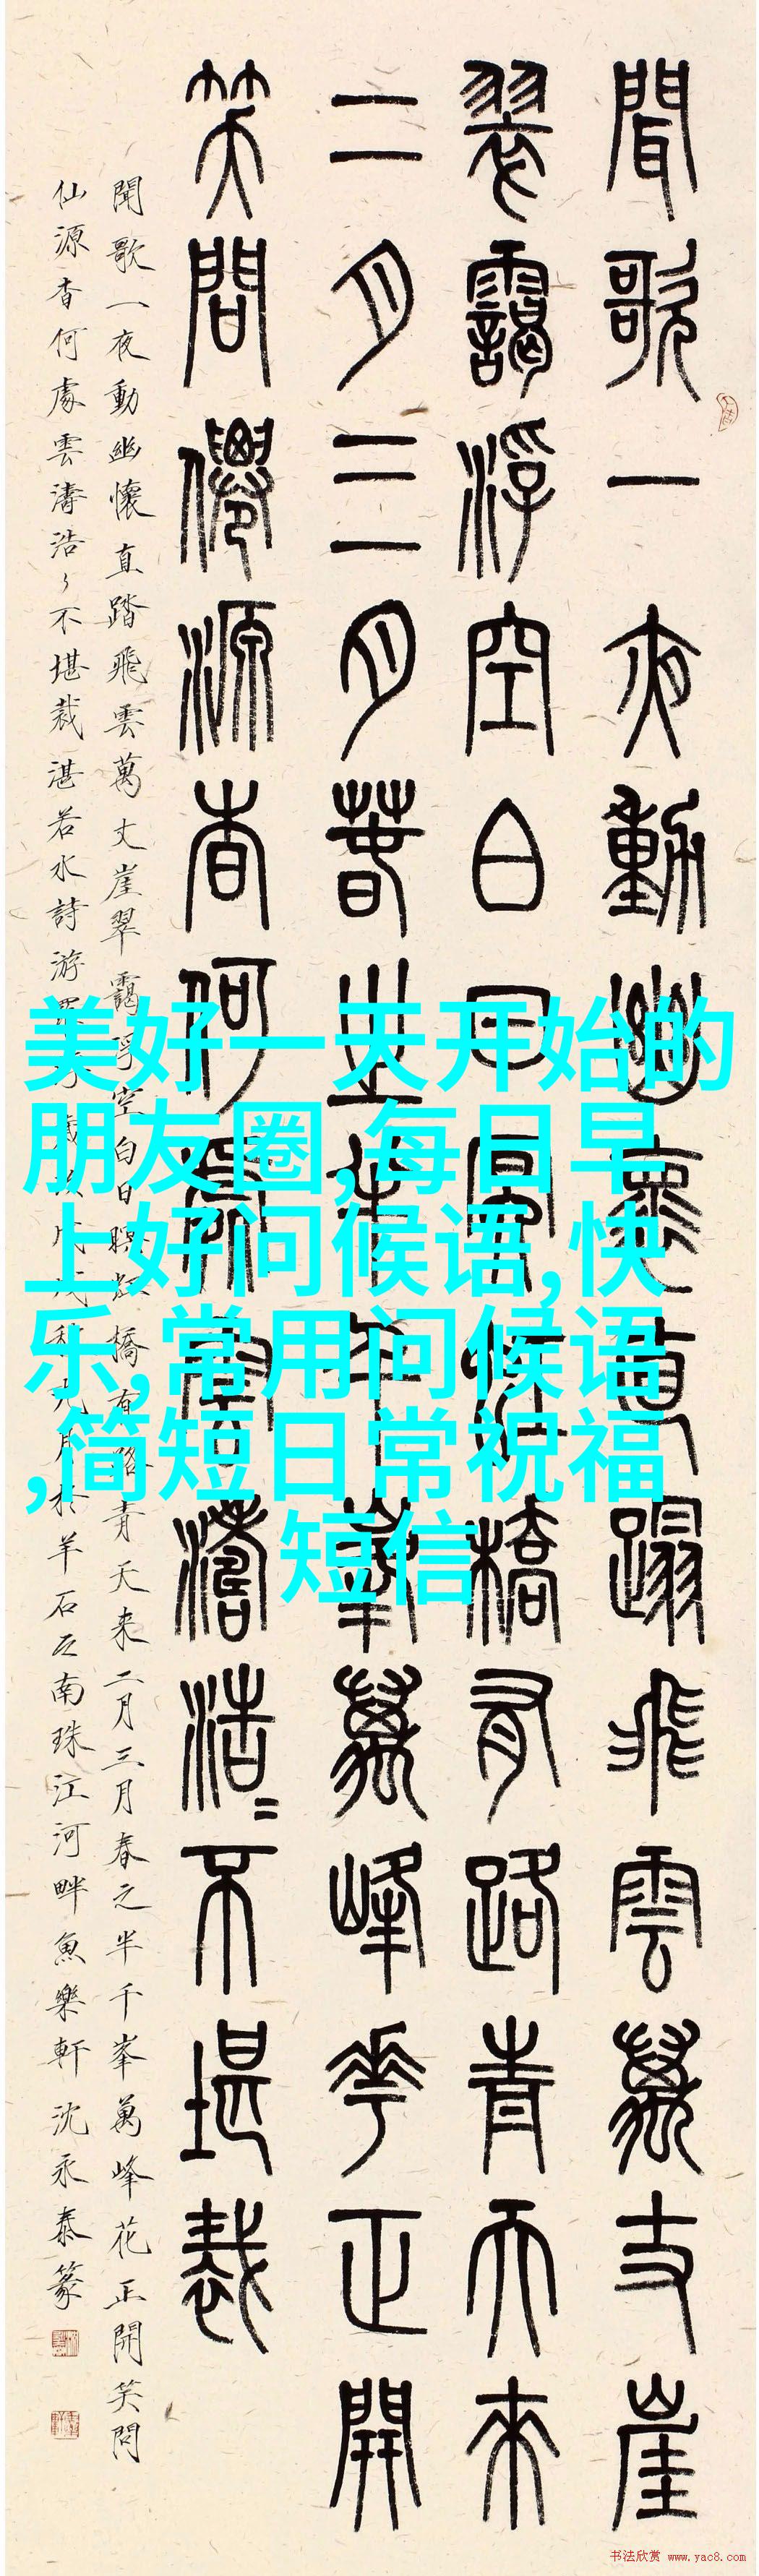 聞歌一夜動幽懷直蹋飛雲萬丈崖
翠靄浮空白日橋有路青天來
二月三月春之半千峯萬峰花正開
笑問僊源杳何處雲濤浩〻不堪裁
聞歌一夜動幽懷直踏飛雲萬丈崖翠靄浮空白日暝橋有路青天來二月三月春之半千峯萬峰花正開笑問
仙源杳何處雲濤浩〻不堪裁湛若水詩游歲次戊戌秋九月於羊石之南珠江河畔魚樂軒沈永泰篆
美好一天开始的
朋友圈,每日早
上好问候语,快
乐,常用问候语
,简短日常祝福
短信
书法欣赏 www.yac8.com